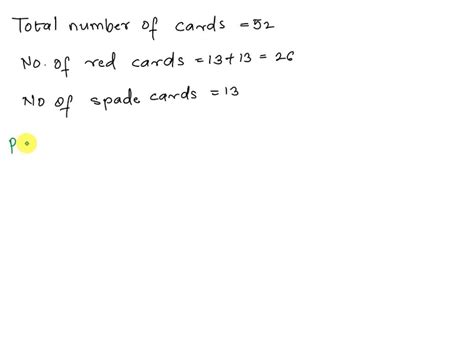 Total number of cards = 52
No. of red cards = 13 + 13 = 26
No of spade cards = 13
P